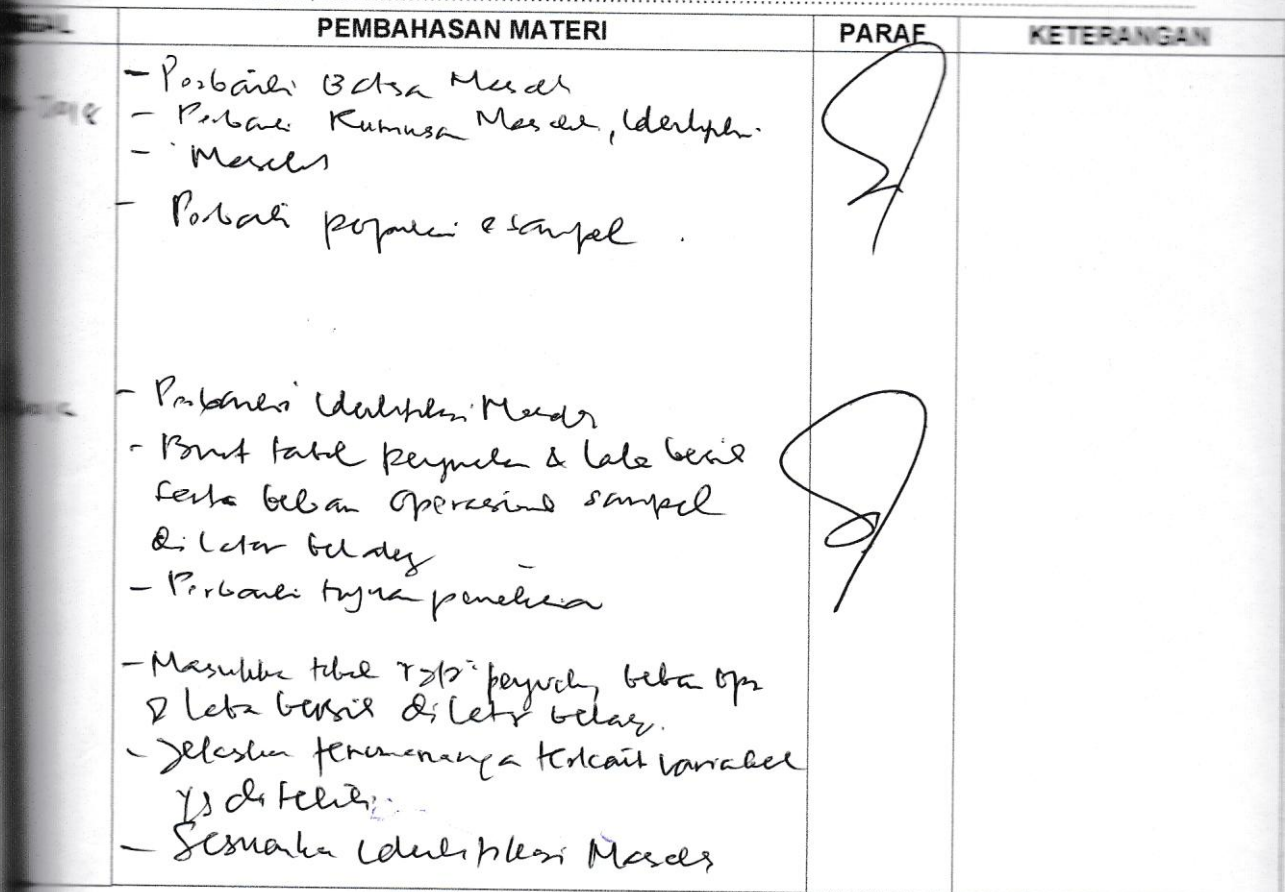 PEMBAHASAN MATERI PARAF KETERANGAN
- Perbaiki Batasa Masalah
- Perbaiki Rumusa Masalah, Identifikasi
- Masalah
- Perbaiki populasi & sampel .
- Perbaiki Identifikasi Masalah
- Buat tabel penjualan & laba bersih
serta beban operasional sampel
di latar belakang
- Perbaiki tujuan penelitian
- Masukka tabel penjualan, beban ops
& laba bersih di latar belakang.
- Jelaska fenomenanya terkait variabel
yg di teliti.
- Sesuaika identifikasi Masalah